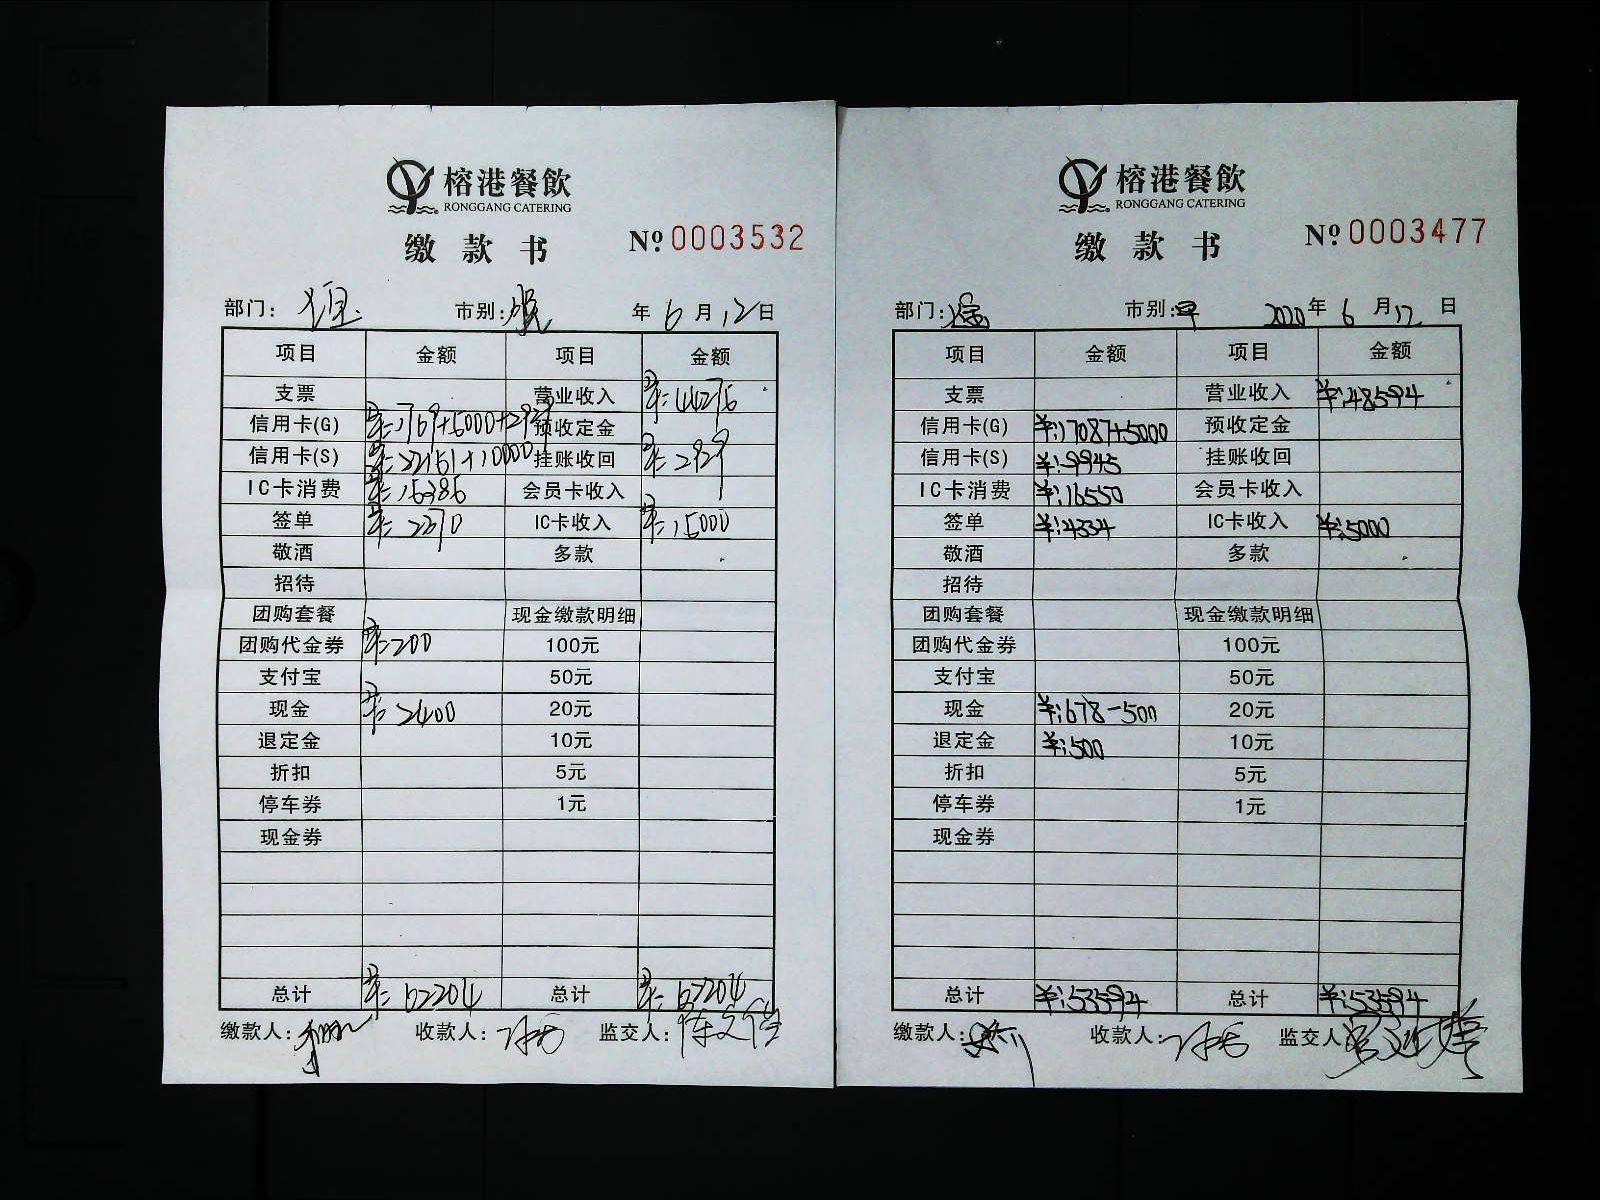 榕港餐飲
RONGGANG CATERING
缴款书
№ 0003532
部门: 市别: 晚 年 6 月 12 日
项目 金额 项目 金额
支票 营业收入 ¥:44276
信用卡(G) ¥:1769+5000+2928 预收定金
信用卡(S) ¥:22151+10000 挂账收回 ¥:2928
IC卡消费 ¥:15386 会员卡收入
签单 ¥:2370 IC卡收入 ¥:15000
敬酒 多款
招待
团购套餐 现金缴款明细
团购代金券 ¥:200 100元
支付宝 50元
现金 ¥:2400 20元
退定金 10元
折扣 5元
停车券 1元
现金券
总计 ¥:62204 总计 ¥:62204
缴款人: 收款人: 监交人:
榕港餐飲
RONGGANG CATERING
缴款书
№ 0003477
部门: 市别: 早 2020 年 6 月 12 日
项目 金额 项目 金额
支票 营业收入 ¥:48594
信用卡(G) ¥:17087+5000 预收定金
信用卡(S) ¥:9945 挂账收回
IC卡消费 ¥:16550 会员卡收入
签单 ¥:4334 IC卡收入 ¥:5000
敬酒 多款
招待
团购套餐 现金缴款明细
团购代金券 100元
支付宝 50元
现金 ¥:678-500 20元
退定金 ¥:500 10元
折扣 5元
停车券 1元
现金券
总计 ¥:53594 总计 ¥:53594
缴款人: 收款人: 监交人